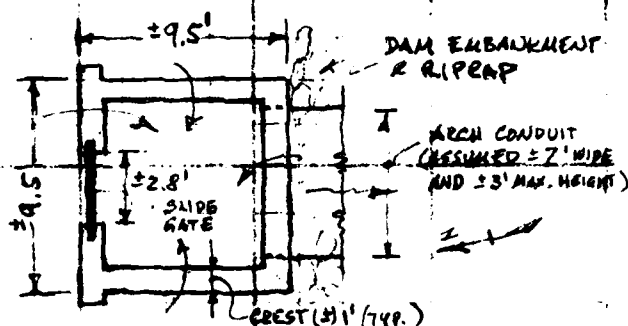 ±9.5'
DAM EMBANKMENT
& RIPRAP
ARCH CONDUIT
(ASSUMED ±7' WIDE
AND ±3' MAX. HEIGHT)
±9.5'
±2.8'
SLIDE
GATE
CREST (±)1' (TYP.)